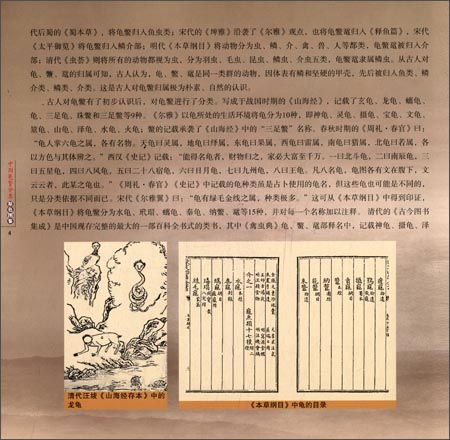 代后蜀的《蜀本草》，将龟鳖归入鱼虫类；宋代的《埤雅》沿袭了《尔雅》观点，也将龟鳖鼋归入《释鱼篇》，宋代
《太平御览》将龟鳖归入鳞介部；明代《本草纲目》将动物分为虫、鳞、介、禽、兽、人等部类，龟鳖鼋被归入介
部；清代《虫荟》则将所有的动物都视为虫，分为羽虫、毛虫、昆虫、鳞虫、介虫五类，龟鳖鼋隶属鳞虫。从古人对
龟、鳖、鼋的归属可知，古人认为，龟、鳖、鼋是同一类群的动物，因体表有鳞和坚硬的甲壳，先后被归入鱼类、鳞
介类、鳞类、介类。这是古人对龟鳖归属极为朴素、自然的认识。
古人对龟鳖有了初步认识后，对龟鳖进行了分类。写成于战国时期的《山海经》，记载了玄龟、龙龟、蠵龟、
龟、三足龟、珠鳖和三足鳖等9种。《尔雅》以龟所处的生活环境将龟分为10种，即神龟、灵龟、摄龟、宝龟、文龟、
筮龟、山龟、泽龟、水龟、火龟；鳖的记载承袭了《山海经》中的“三足鳖”名称。春秋时期的《周礼·春官》曰：
“龟人掌六龟之属，各有名物。天龟曰灵属，地龟曰绎属，东龟曰果属，西龟曰雷属，南龟曰猎属，北龟曰若属，各
以方色与其体辨之。”西汉《史记》记载：“能得名龟者，财物归之，家必大富至千万。一曰北斗龟，二曰南辰龟，三
曰五星龟，四曰八风龟，五曰二十八宿龟，六曰日月龟，七曰九州龟，八曰王龟。凡八名龟，龟图各有文在腹下，文
云云者，此某之龟也。”《周礼·春官》《史记》中记载的龟种类虽是占卜使用的龟名，但这些龟也可能是不同的，
只是分类依据不同而已。宋代《尔雅翼》曰：“龟有绿毛金线之属，种类极多。”这可从《本草纲目》中得到印证，
《本草纲目》将龟鳖分为水龟、玳瑁、蠵龟、秦龟、纳鳖、鼋等15种，并对每一个名称加以注释。清代的《古今图书
集成》是中国现存完整的最大的一部百科全书式的类书，其中《禽虫典》龟、鳖、鼋部释名中，记载神龟、摄龟、泽
4
清代汪绂《山海经存本》中的
龙龟
《本草纲目》中龟的目录